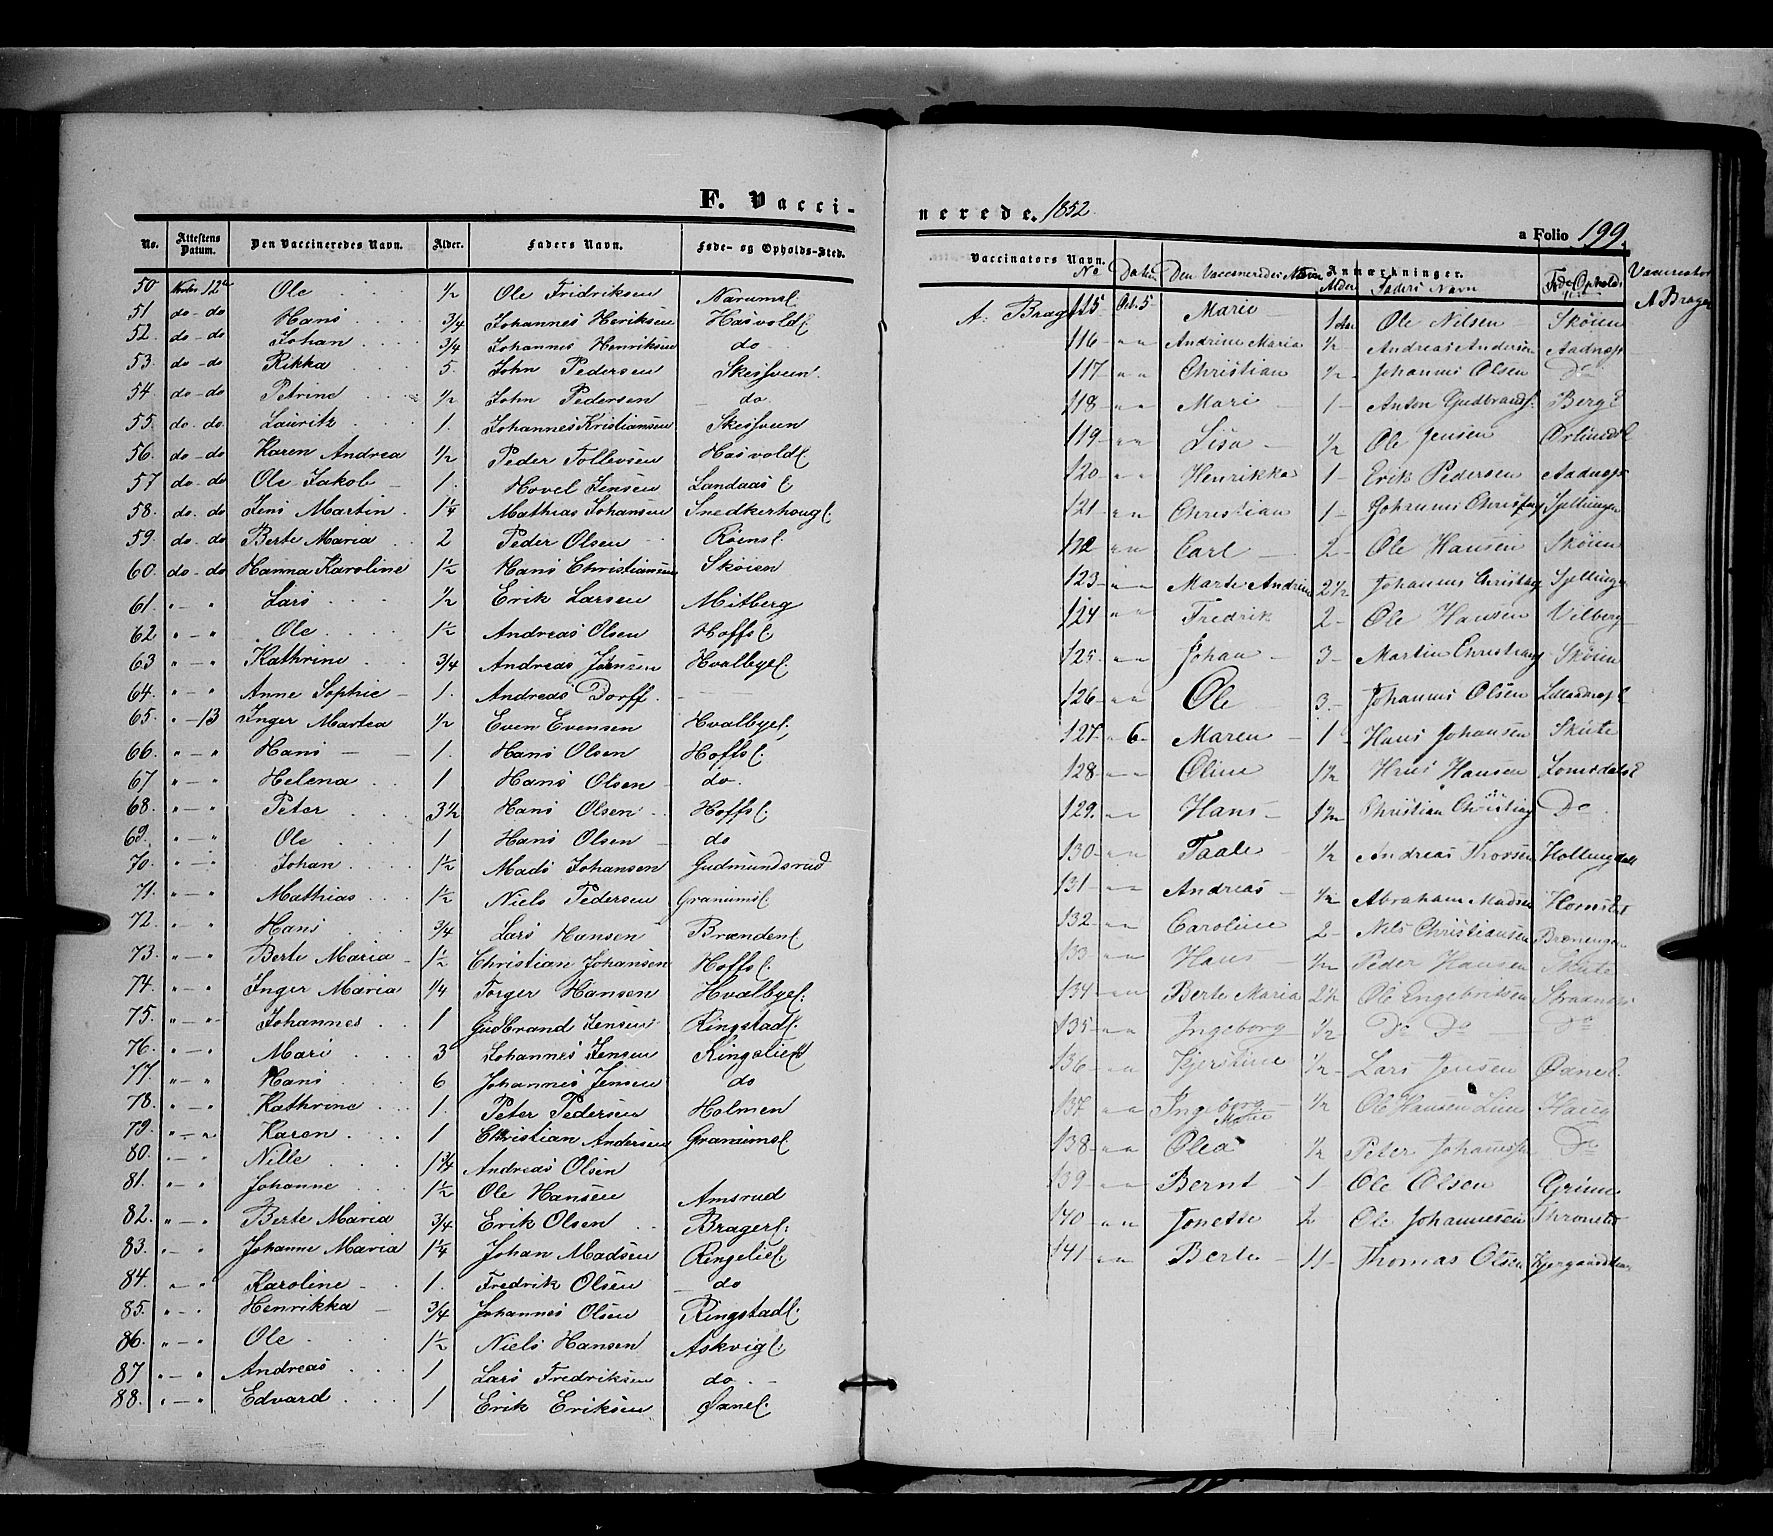 F. Vacci-
No. Attestens Datum. Den Vaccineredes Navn. Alder. Faders Navn. Føde- og Opholds-Sted.
50 12 Ole ½ Ole Fridriksen Narumsl.
51 do - do Hans ¾ Johannes Heriksen Hasvoldl.
52. do - do Johan ¾ Johannes Henriksen do
53. do - do Rikka 5. John Pedersen
54 do - do Petrine ½ John Pedersen do.
55. do - do. Lauritz 1. Johannes Kristiansen
56. do - do Karen Andrea ½ Peder Tollevsen Hasvoldl
57 do - do Ole Jakob 1. Hovel Jensen Landaas l
58. do - do Jens Martin. 1¼ Mathias Johansen Snedkerhougl.
59. do - do Berte Maria 2 Peder Olsen Røensl.
60. do - do Hanna Karoline 1½ Hans Christiansen Skøien
61. " - " Lars ½ Erik Larsen Mitberg
62 " - " Ole 1½ Andreas Olsen Hoffsl.
63 " - " Kathrine ¾ Andreas Jensen Hvalbyel.
64. " - " Anne Sophie 1. Andreas Dorff.
65. " - 13 Inger Martea ½ Even Evensen Hvalbyel.
66. " - " Hans 1. Hans Olsen Hoffsl.
67 " - " Helena 1 Hans Olsen do.
68. " - " Peter 3½ Hans Olsen Hoffsl.
69. " - " Ole 1 Hans Olsen do
70. " - " Johan 1½ Mads Johansen Gudmundsrud
71. " - " Mathias 1½ Niels Pedersen Granumsl.
72. " - " Hans ¾ Lars Hansen Brændenl
73. " - " Berte Maria 1½ Christian Johansen Hoffsl.
74. " - " Inger Maria ¼ Torger Hansen Hvalbyel.
75. " - " Johannes 1 Gudbrand Jensen Ringstadl.
76. " - " Mari 3 Johannes Jensen
77. " - " Hans 6 Johannes Jensen do
78. " - " Kathrine 1. Peter Pedersen Holmen
79. " - " Karen 1 Christian Andersen Granumsl
80. " - " Nille 1¾ Andreas Olsen
81. " - " Johanne 1½ Ole Hansen Amsrud
82. " - " Berte Maria ¾ Erik Olsen Bragerl.
83. " - " Johanne Maria 1¼ Johan Madsen Ringeliel.
84. " - " Karoline 1. Fredrik Olsen do
85. " - " Henrikka ¾ Johannes Olsen Ringstadl.
86. " - " Ole 1½ Niels Hansen Askvigl.
87 " - " Andreas 1 Lars Fredriksen do.
88. " - " Edvard 1 Erik Eriksen Øxnel.
nerede. 1852.
a Folio 199.
Vaccinators Navn. Anmærkninger.
No Datum Den Vaccineredes Navn Alder Faders Navn Vaccinator
A. Brager A Brager
115 Oct. 5 Marie 1 Ole Nilsen Skøien
116 " " Andrine Maria ½ Andreas Andersen
117 " " Christian ½ Johannes Olsen Do
118 " " Mari 1 Anton Gudbrands.
119 " " Lisa ½ Ole Jensen
120 " " Henrikka 1 Erik Pedersen
121 " " Christian 1 Sjellingen
122 " " Carl 2 Ole Hansen Skøien
123 " " Marte Andrine 2½
124 " " Fredrik 2 Ole Hansen Vilberg
125 " " Johan 3 Skøien
126 " " Ole 3 Johannes Olsen
127 " 6 Maren 1 Hans Johansen Skute
128 " " Oline 1½ Hans Hansen
129. " " Hans 1½ Do.
130 " " Taale ½ Andreas Thorsen
131 " " Andreas ½ Abraham Madsen
132 " " Caroline 2 Nils Christiansen
133 " " Hans ½ Peder Hansen Skute
134 " " Berte Maria 2½ Ole Engebretsen
135 " " Ingeborg ½ Do Do Do
136 " " Kjerstine ½ Lars Jensen Øxnel.
137 " " Ingeborg Marie ½ Ole Hansen Haug
138 " " Olea ½ Do
139 " " Bernt 1 Ole Olsen
140 " " Jonette 2 Ole Johannesen
141 " " Berte 11 Thomas Olsen